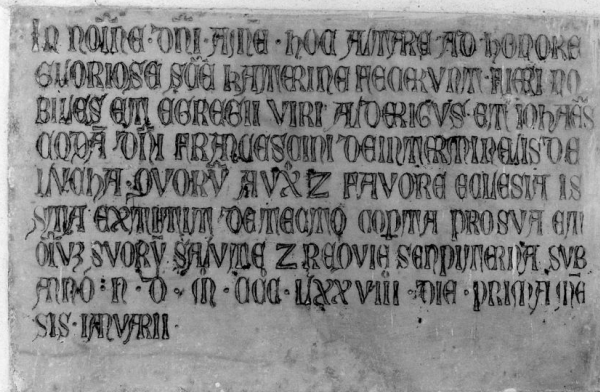 IN NOM̄E · DÑI · AM̄E · HOC ALTARE AD · HONORE
GLORIOSE SCĒ KATERINE FECERVNT · FIERI NO
BILES ET EGREGII VIRI ALDERIGVS · ET IOHAẼS
CODÃ DÑI FRANCESCINI DEINTERMINELIS DE
LVCHA · QVORṼ AVX̃Z FAVORE ECLESIA IS
STA EXTITIT DETECTO COPTA PROSVA ET
OĨVZ SVORṼ SALVTE Z REQVIE SENPITERNA SVB
ANÕ : N · D · M · CCC · LXXVIII · DIE · PRIMA MẼ
SIS · IANVARII ·